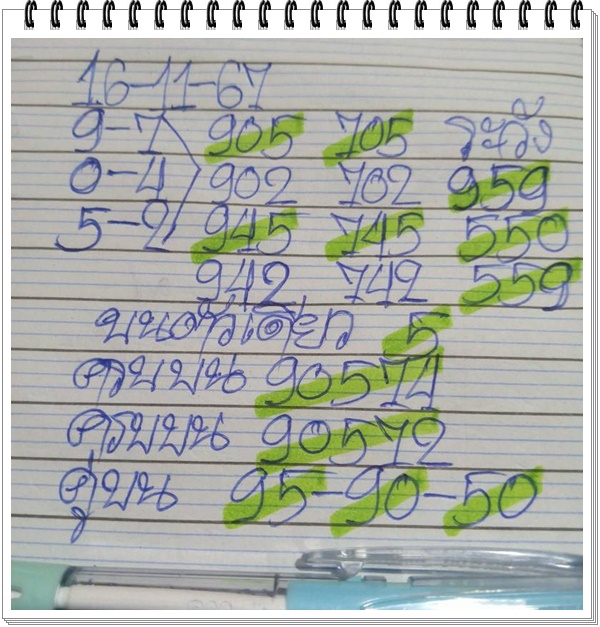 16-11-67
9-7 905 705 ระวัง
0-4 902 702 959
5-2 945 745 550
942 742 559
บนตัวเดียว 5
ครบบน 90574
ครบบน 90572
คู่บน 95-90-50